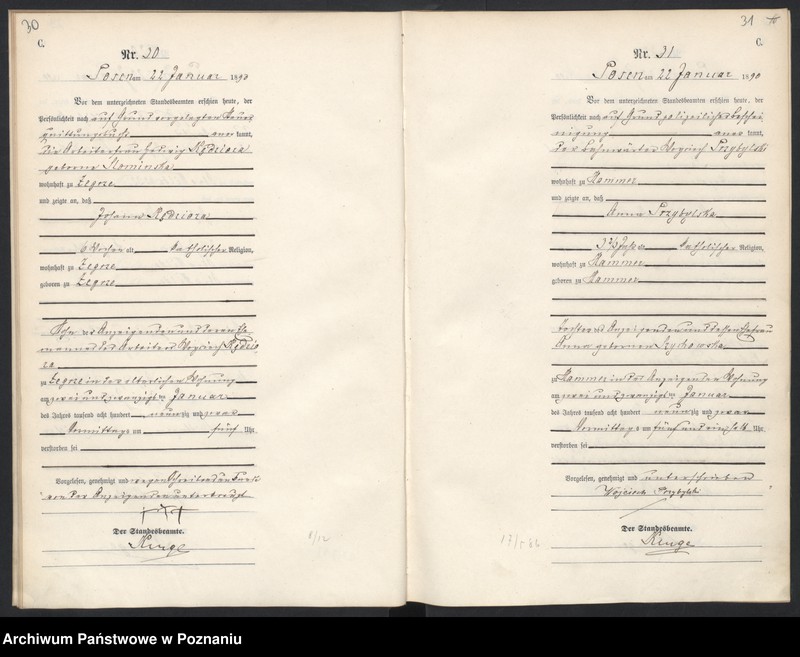 30
C.
Nr. 30
Posen am 22 Januar 1890
Vor dem unterzeichneten Standesbeamten erschien heute, der
Persönlichkeit nach auf Grund vorgelegten
quittungsbuchs kannt,
die Arbeiterfrau Hedwig
geborne
wohnhaft zu Zegrze
und zeigte an, daß
Johann
6 Wochen alt, katholischer Religion,
wohnhaft zu Zegrze
geboren zu Zegrze
Sohn der Anzeigenden und deren Ehe
mannes des Arbeiters
zu Zegrze in der elterlichen Wohnung
am zwei und zwanzigsten Januar
des Jahres tausend acht hundert neunzig und zwar
Vormittags um fünf Uhr
verstorben sei
Vorgelesen, genehmigt und wegen Schreibens
von der Anzeigenden unterkreuzt
+++
Der Standesbeamte.
Runge
8/12
31
C.
Nr. 31
Posen am 22 Januar 1890
Vor dem unterzeichneten Standesbeamten erschien heute, der
Persönlichkeit nach auf Grund polizeilicher Beschei
nigung kannt,
der Bahnwärter Przybylski
wohnhaft zu
und zeigte an, daß
Anna Przybylska
3 1/2 Jahr alt, katholischer Religion,
wohnhaft zu
geboren zu
Tochter des Anzeigenden und dessen Ehefrau
Anna geborenen
zu in des Anzeigenden Wohnung
am zwei und zwanzigsten Januar
des Jahres tausend acht hundert neunzig und zwar
Vormittags um fünf und ein halb Uhr
verstorben sei
Vorgelesen, genehmigt und unterschrieben
Wojciech Przybylski
Der Standesbeamte.
Runge
Archiwum Państwowe w Poznaniu